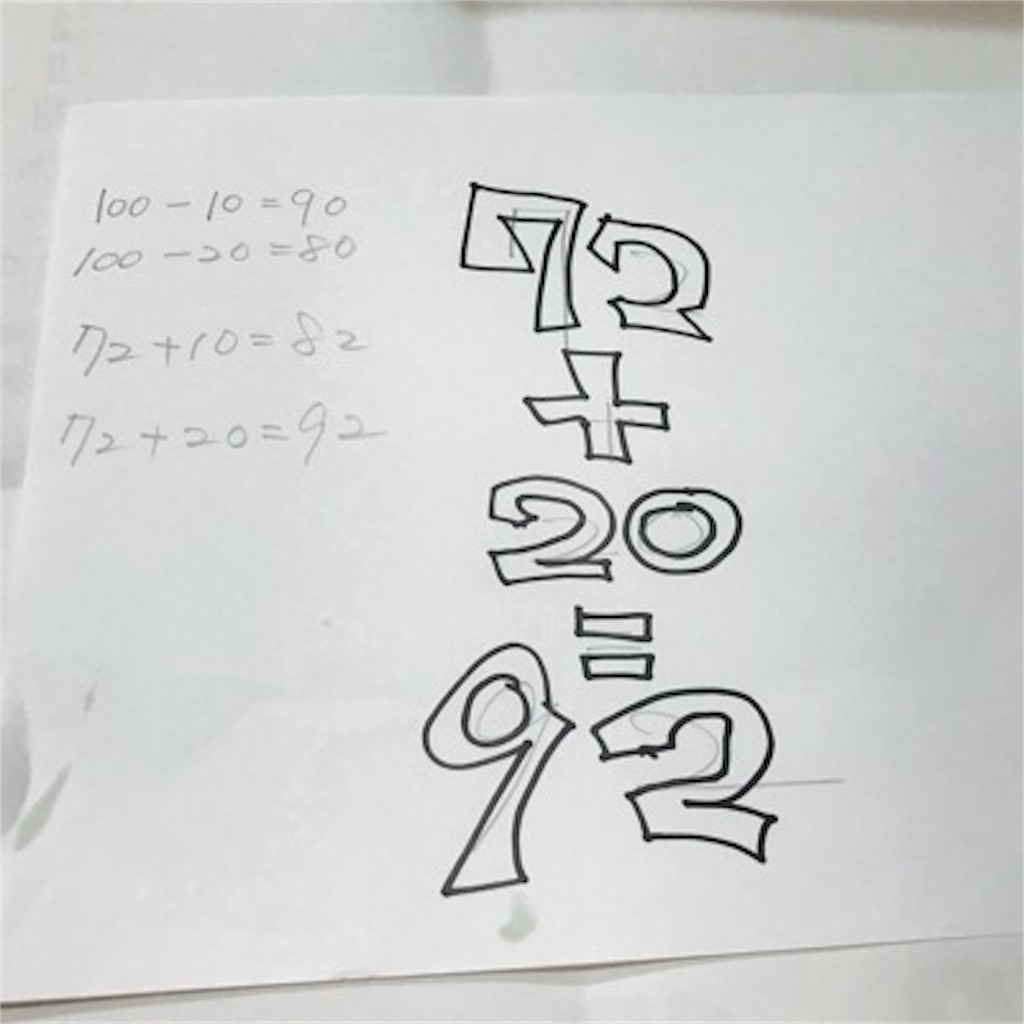 100 - 10 = 90
100 - 20 = 80
72 + 10 = 82
72 + 20 = 92
72
+
20
=
92